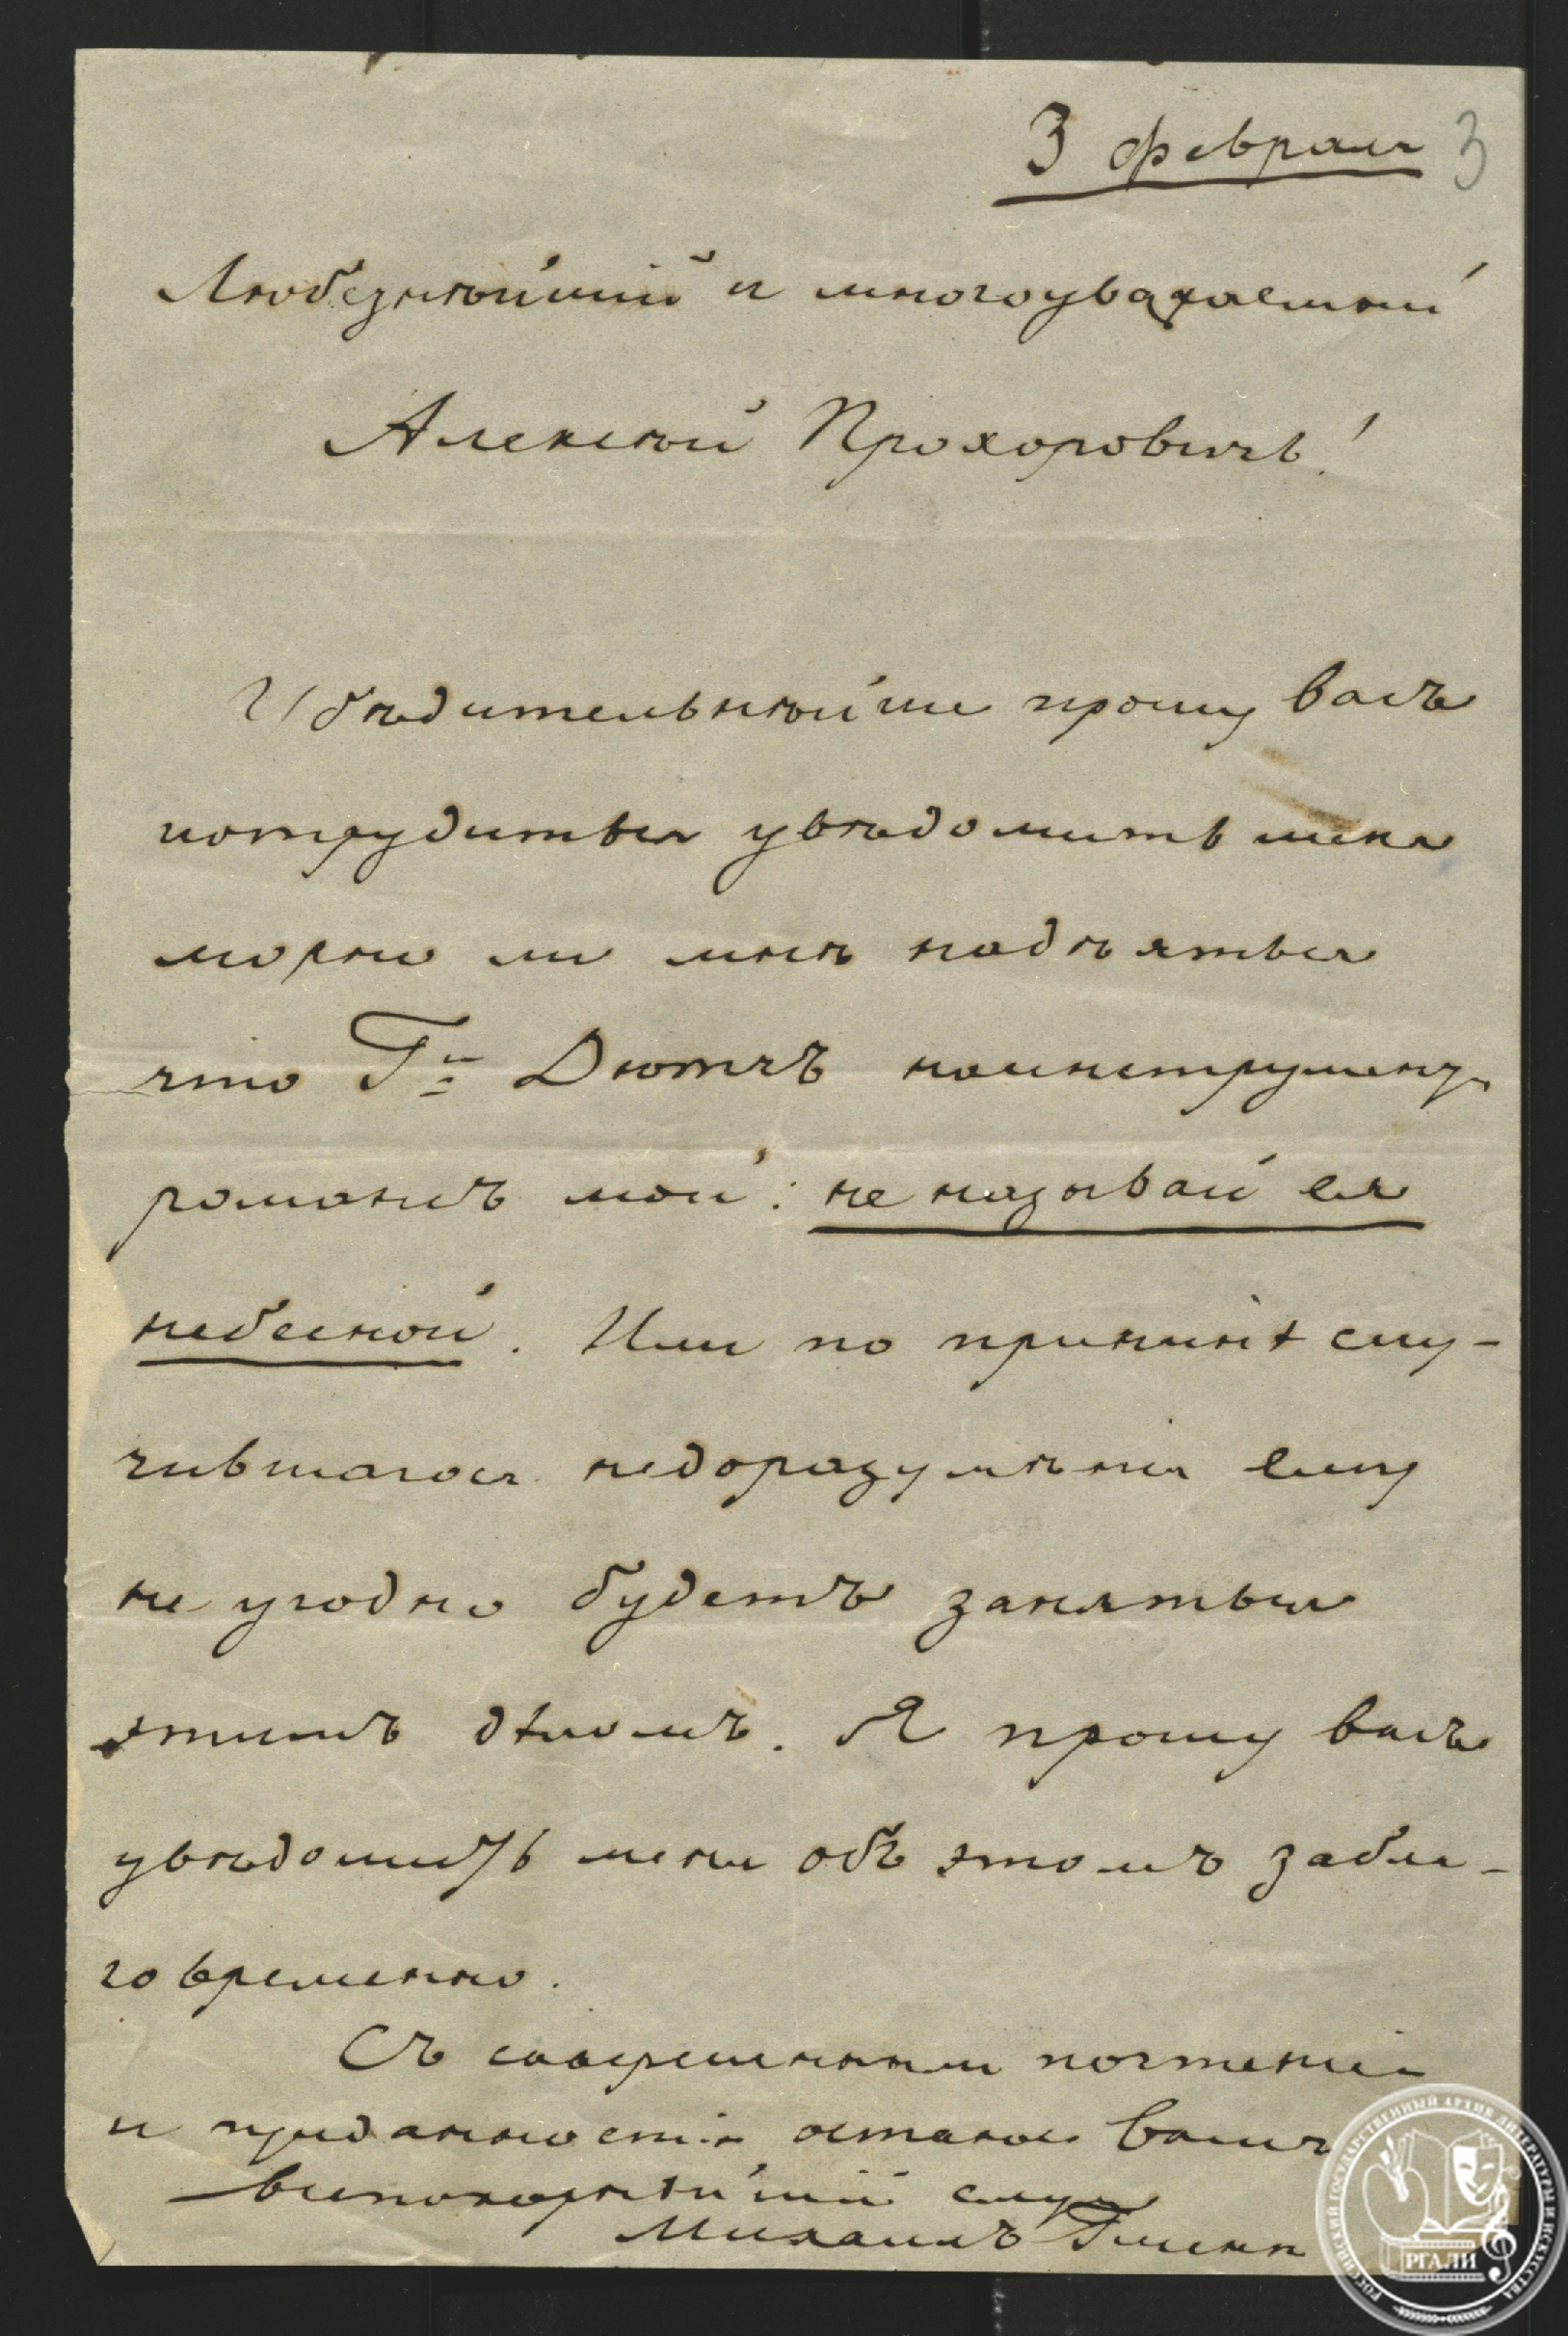 3 февраля 3
Любезнѣйшій и многоуважаемый
Алексѣй Прохоровичь!
Убѣдительнѣйше прошу васъ
потрудиться увѣдомить меня
можно ли мнѣ надѣяться
что Гⁿ Дютчъ наинструмен.
романсъ мой: не называй ея
небесной. Или по причинѣ слу-
чившагося недоразумѣнія ему
не угодно будетъ заняться
этимъ дѣломъ. Я прошу васъ
увѣдомить меня объ этомъ забла-
говременно.
Съ совершенным почтеніе
и преданностію остаюсь Вашъ
всепокорнѣйшій слуга
Михаилъ Глинка
РОССИЙСКИЙ ГОСУДАРСТВЕННЫЙ АРХИВ ЛИТЕРАТУРЫ И ИСКУССТВА
РГАЛИ